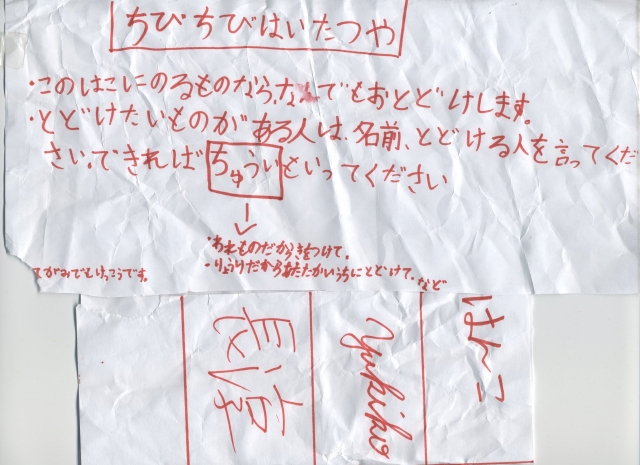 ちびちびはいたつや
・このはこにのるものなら、なんでもおとどけします。
・とどけたいものがある人は、名前、とどける人を言ってくだ
さい。できれば ちゅうい といってください
↓
・われものだからきをつけて。
・りょうりだからあたたかいうちにとどけて。など
てがみでもけっこうです。
はんこ
Yukiko